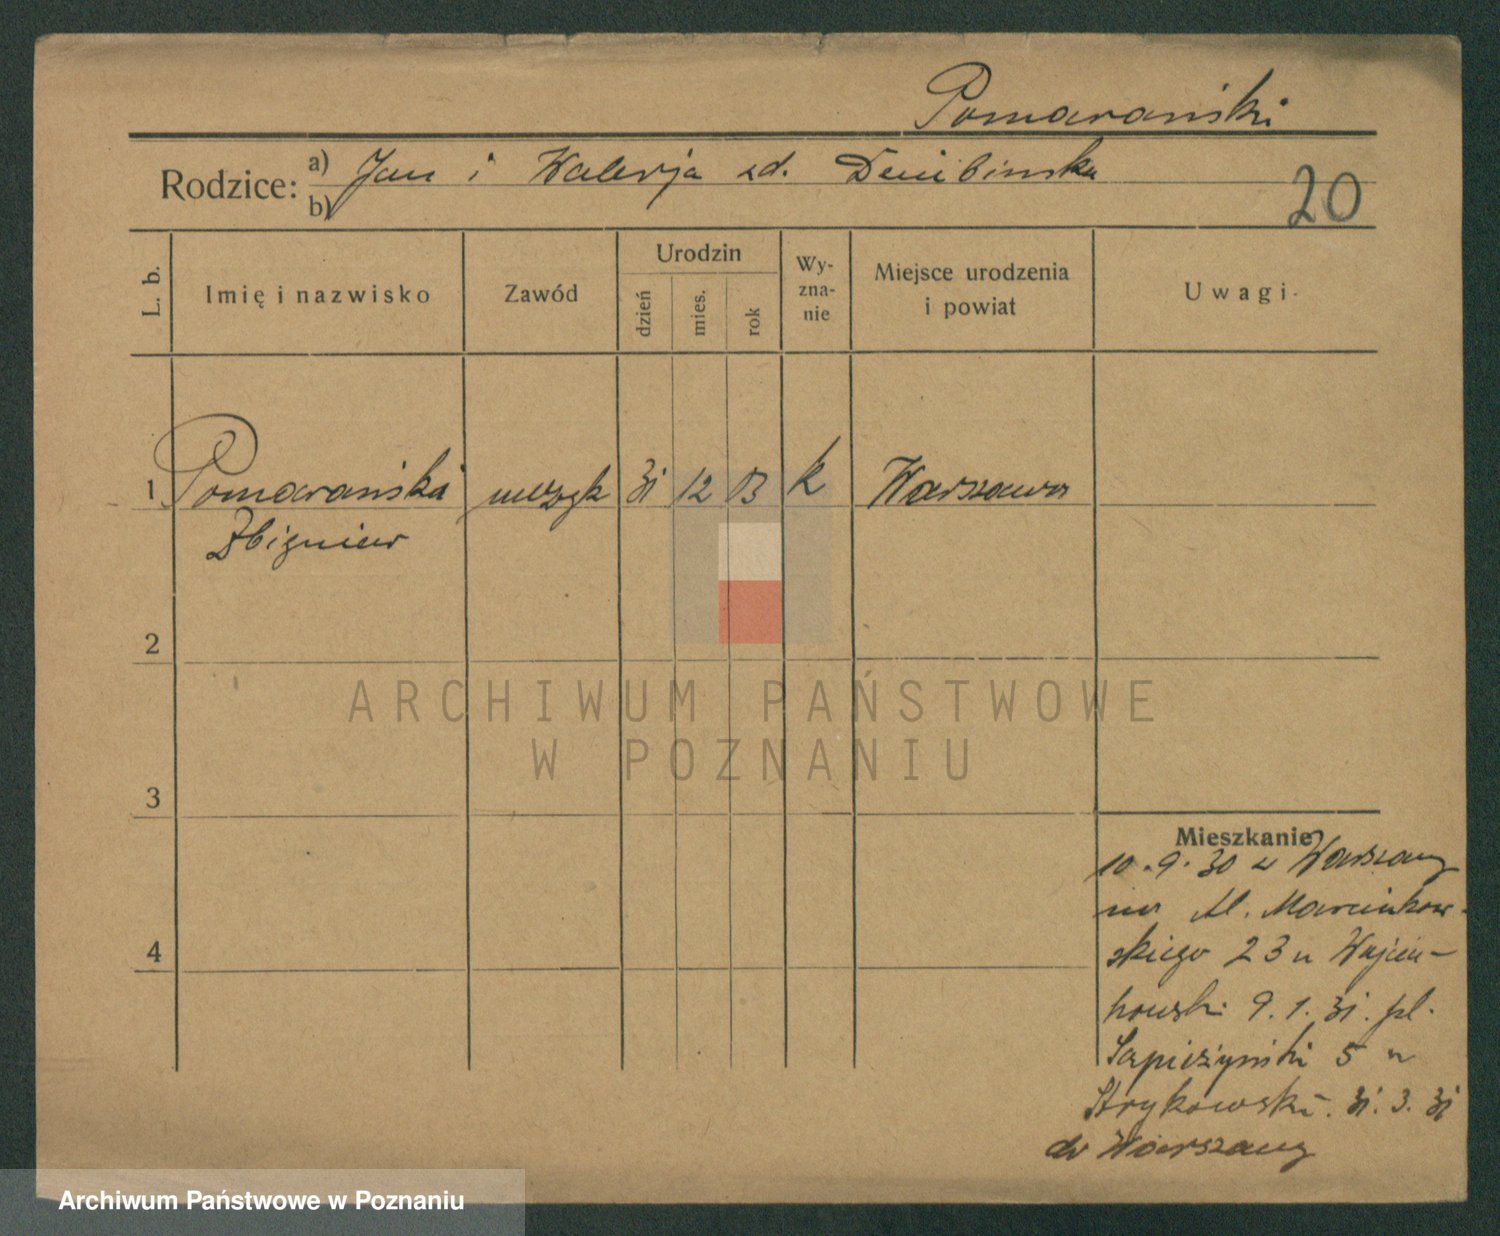 Pomarański
Rodzice: a) Jan i Walerja zd. Dembinska
b)
20
L. b.
Imię i nazwisko
Zawód
Urodzin
dzień
mies.
rok
Wy-
zna-
nie
Miejsce urodzenia
i powiat
Uwagi.
1 Pomarański muzyk 31 12 03 k Warszawa
Zbigniew
2
3
4
ARCHIWUM PAŃSTWOWE
W POZNANIU
Mieszkanie
10.9.30 z Warszawy
na Al. Marcinkow-
skiego 23 u Wojcie-
howski 9.1.31. pl.
Sapieżyński 5 u
Strykowski. 31.3.31
do Warszawy
Archiwum Państwowe w Poznaniu